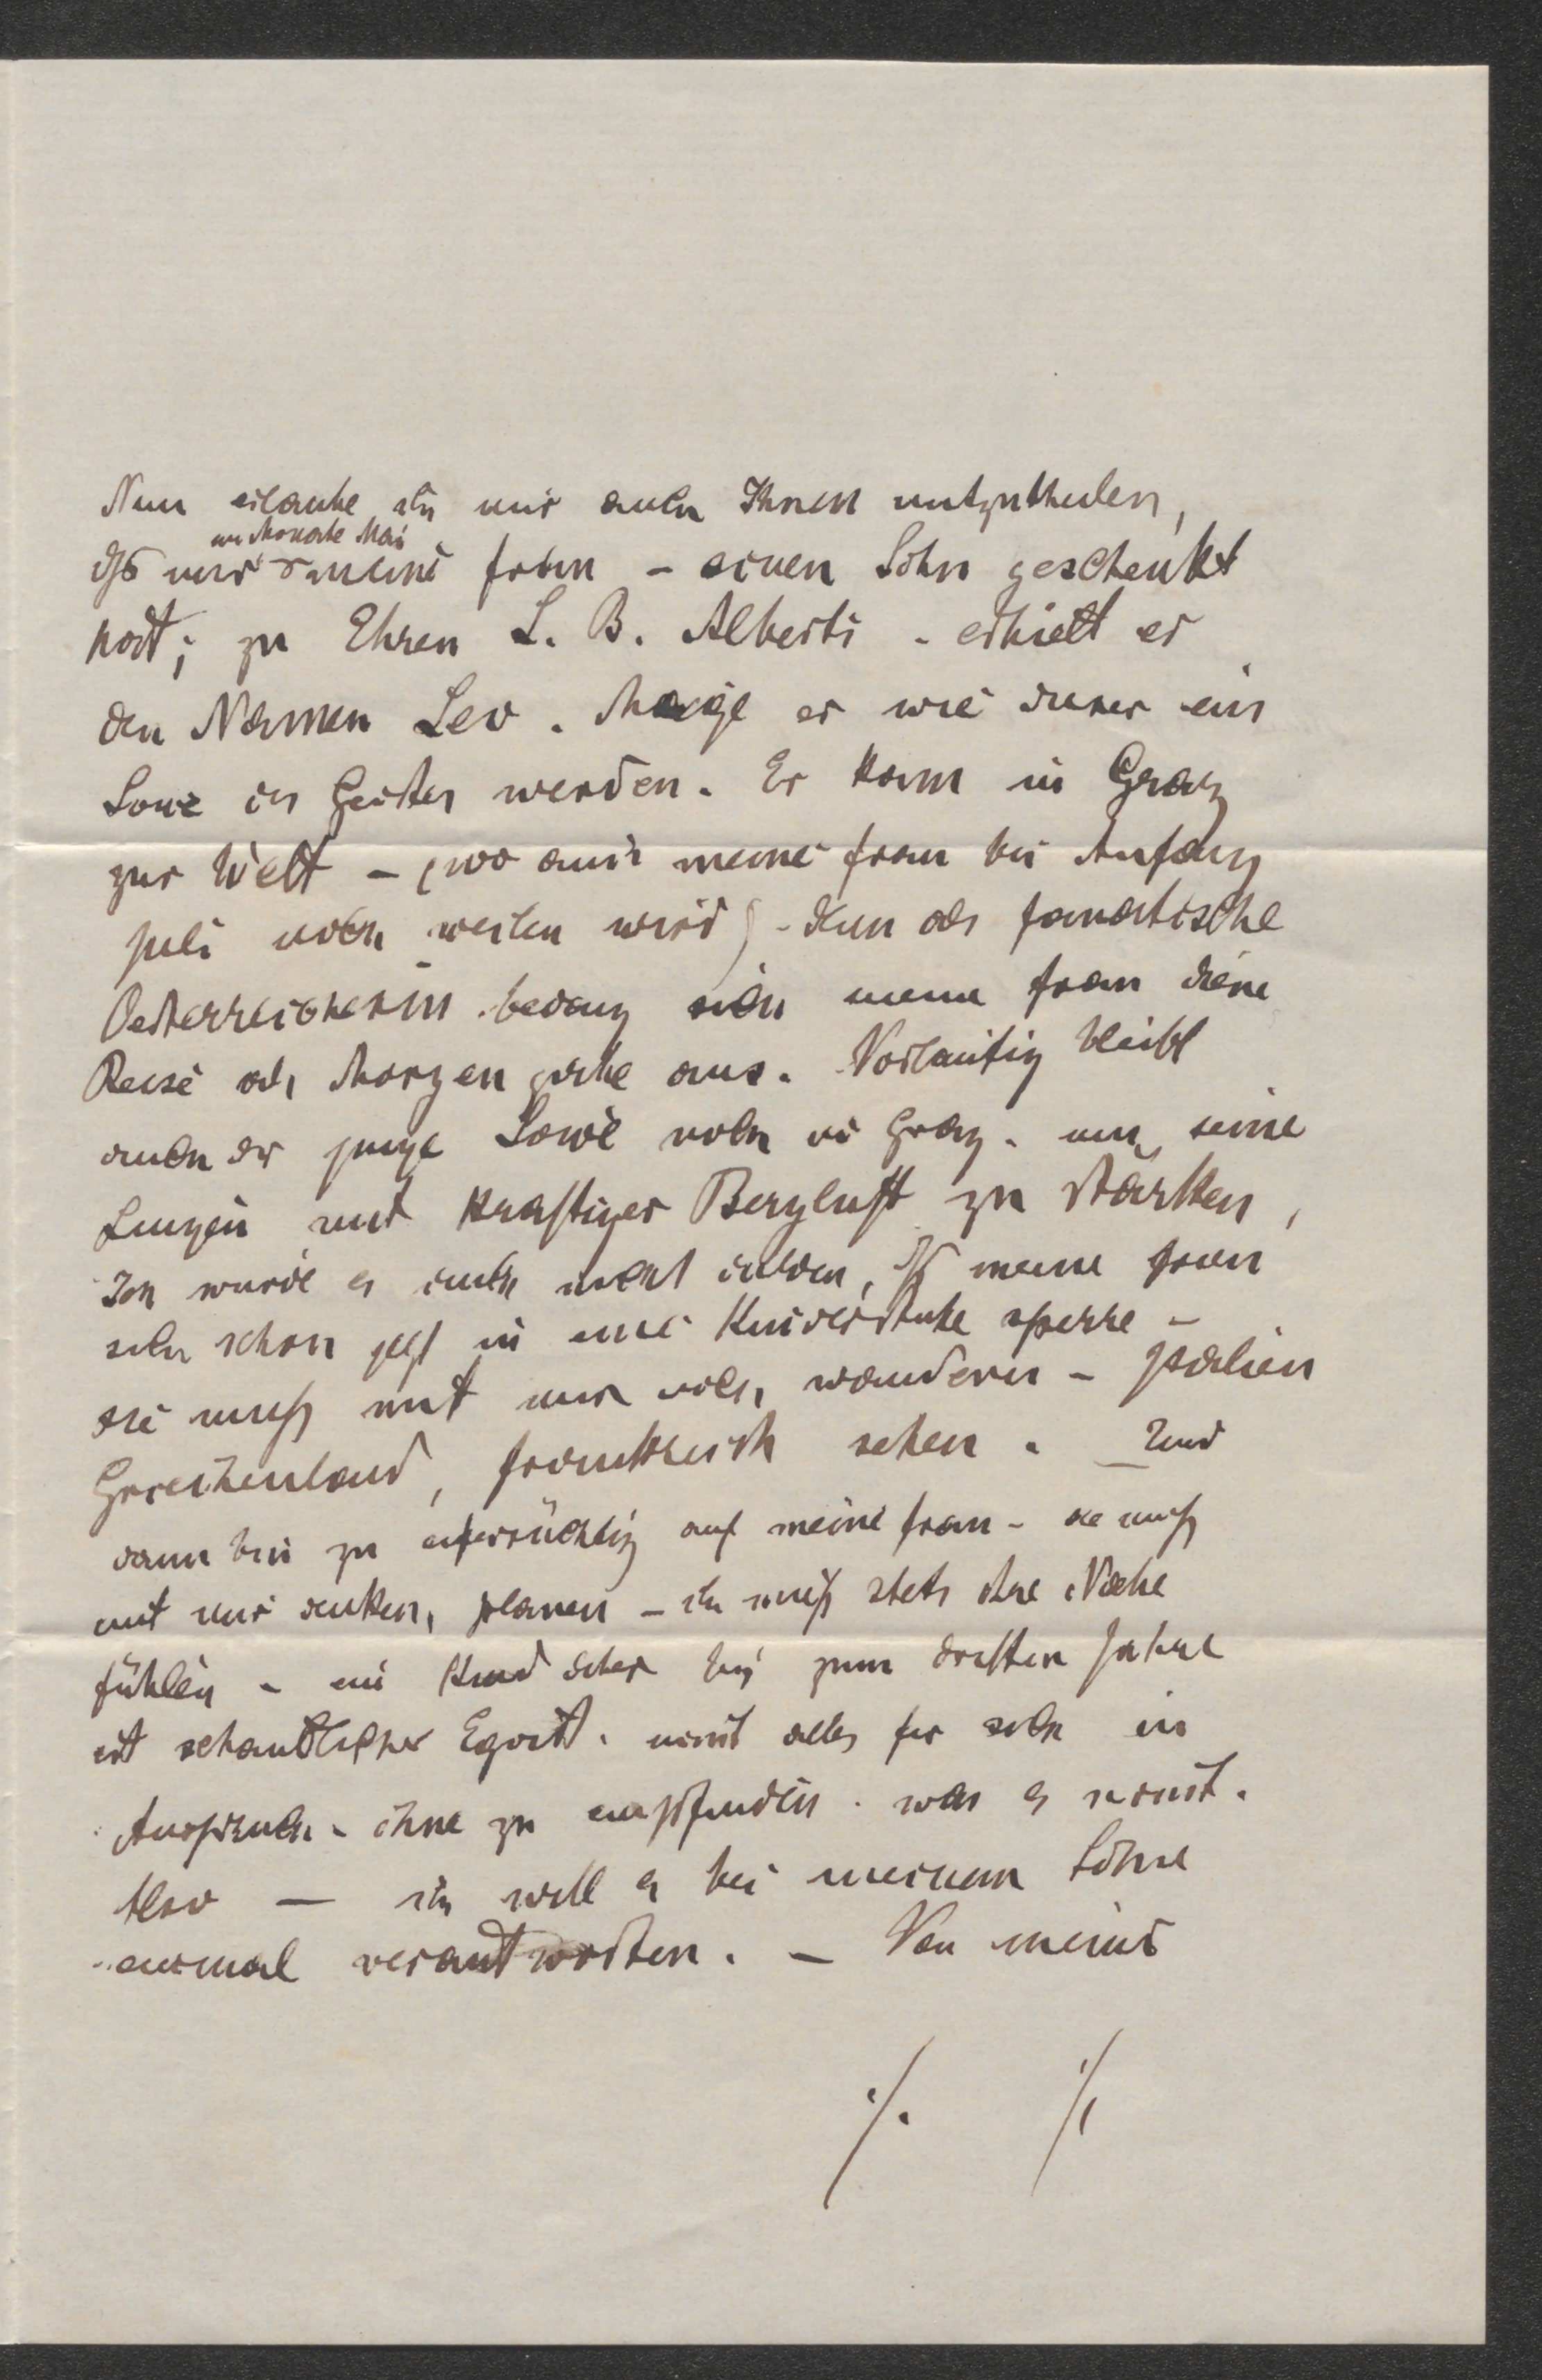 Nun erlaube ich mir auch Ihnen mitzutheilen,
im Monate Mai
dß mir meine Frau – einen Sohn geschenkt
hat; zu Ehren L. B. Alberti – erhielt er
den Namen Leo. Moege er wie dieser ein
Löwe des Geistes werden. Er kam in Graz
zur Welt – (wo auch meine Frau bis Anfang
Juli noch weilen wird) – denn als fanatische
Oesterreicherin bedang sich meine Frau diese
Reise als Morgengabe aus. Vorläufig bleibt
auch der junge Löwe noch in Graz – um seine
Lungen mit kräftiger Bergluft zu stärken,
Ich würde es auch nicht dulden, dß meine Frau
sich schon jetzt in eine Kinderstube sperre –
sie muß mit mir noch wandern – Italien
Griechenland, Frankreich sehen. – Und
dann bin zu eifersüchtig auf meine Frau – sie muß
mit mir denken, planen – ich muß stets ihre Nähe
fühlen – ein Kind aber bis zum dritten Jahre
ist schändlicher Egoist. nimt alles für sich in
Anspruch – ohne zu empfinden was es nimt.
Also — ich will es bei meinem Sohne
einmal verantworten. – Von meiner
./. ./.